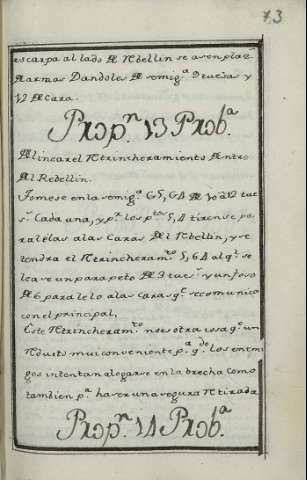 73
escarpa al lado Del Rebellin se asen plaza
De armas Dandoles De semig.ª 9 tuesas y
12 De Cara.
Prop.ⁿ 13 Prob.ª
Delinear el Retrincheramiento Dentro
Del Rebellin.
Tomese en la semig.ª 65, 64 De 10 a 12 tue
s.ˢ Cada una, y p.ʳ los p.ᵗᵒˢ 5, 4 tirense pa
ralelas a las Caras Del Rebellin, y se
tendra el Retrincheram.ᵗᵒ 5, 64 al q.ˡ se
le a se un parapeto De 3 tues.ˢ y un foso
De 6 paralelo a las caras q.ᵉ se comunica
con el principal,
Este Retrincheram.ᵗᵒ no es otra cosa q.ᵉ un
Reduits mui conveniente p.ª q.ᵈᵒ los enemi
gos intentan alogarse en la brecha Como
tambien p.ª haser una segura Retirada
Prop.ⁿ 14 Prob.ª